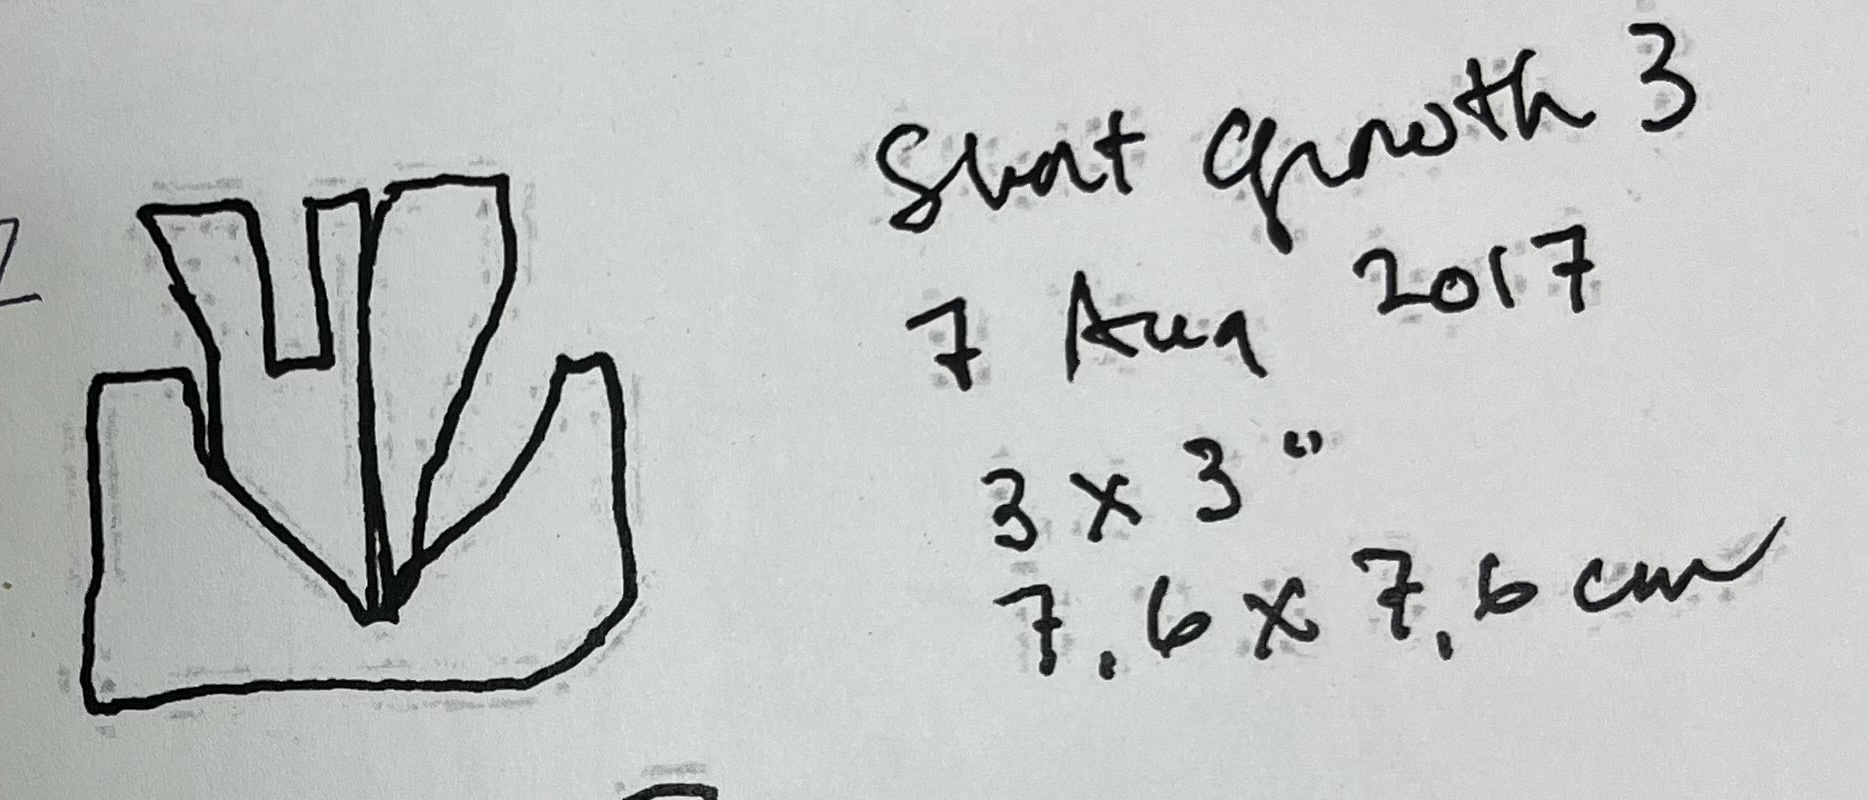 Short Growth 3
7 Aug 2017
3 x 3"
7.6 x 7.6 cm